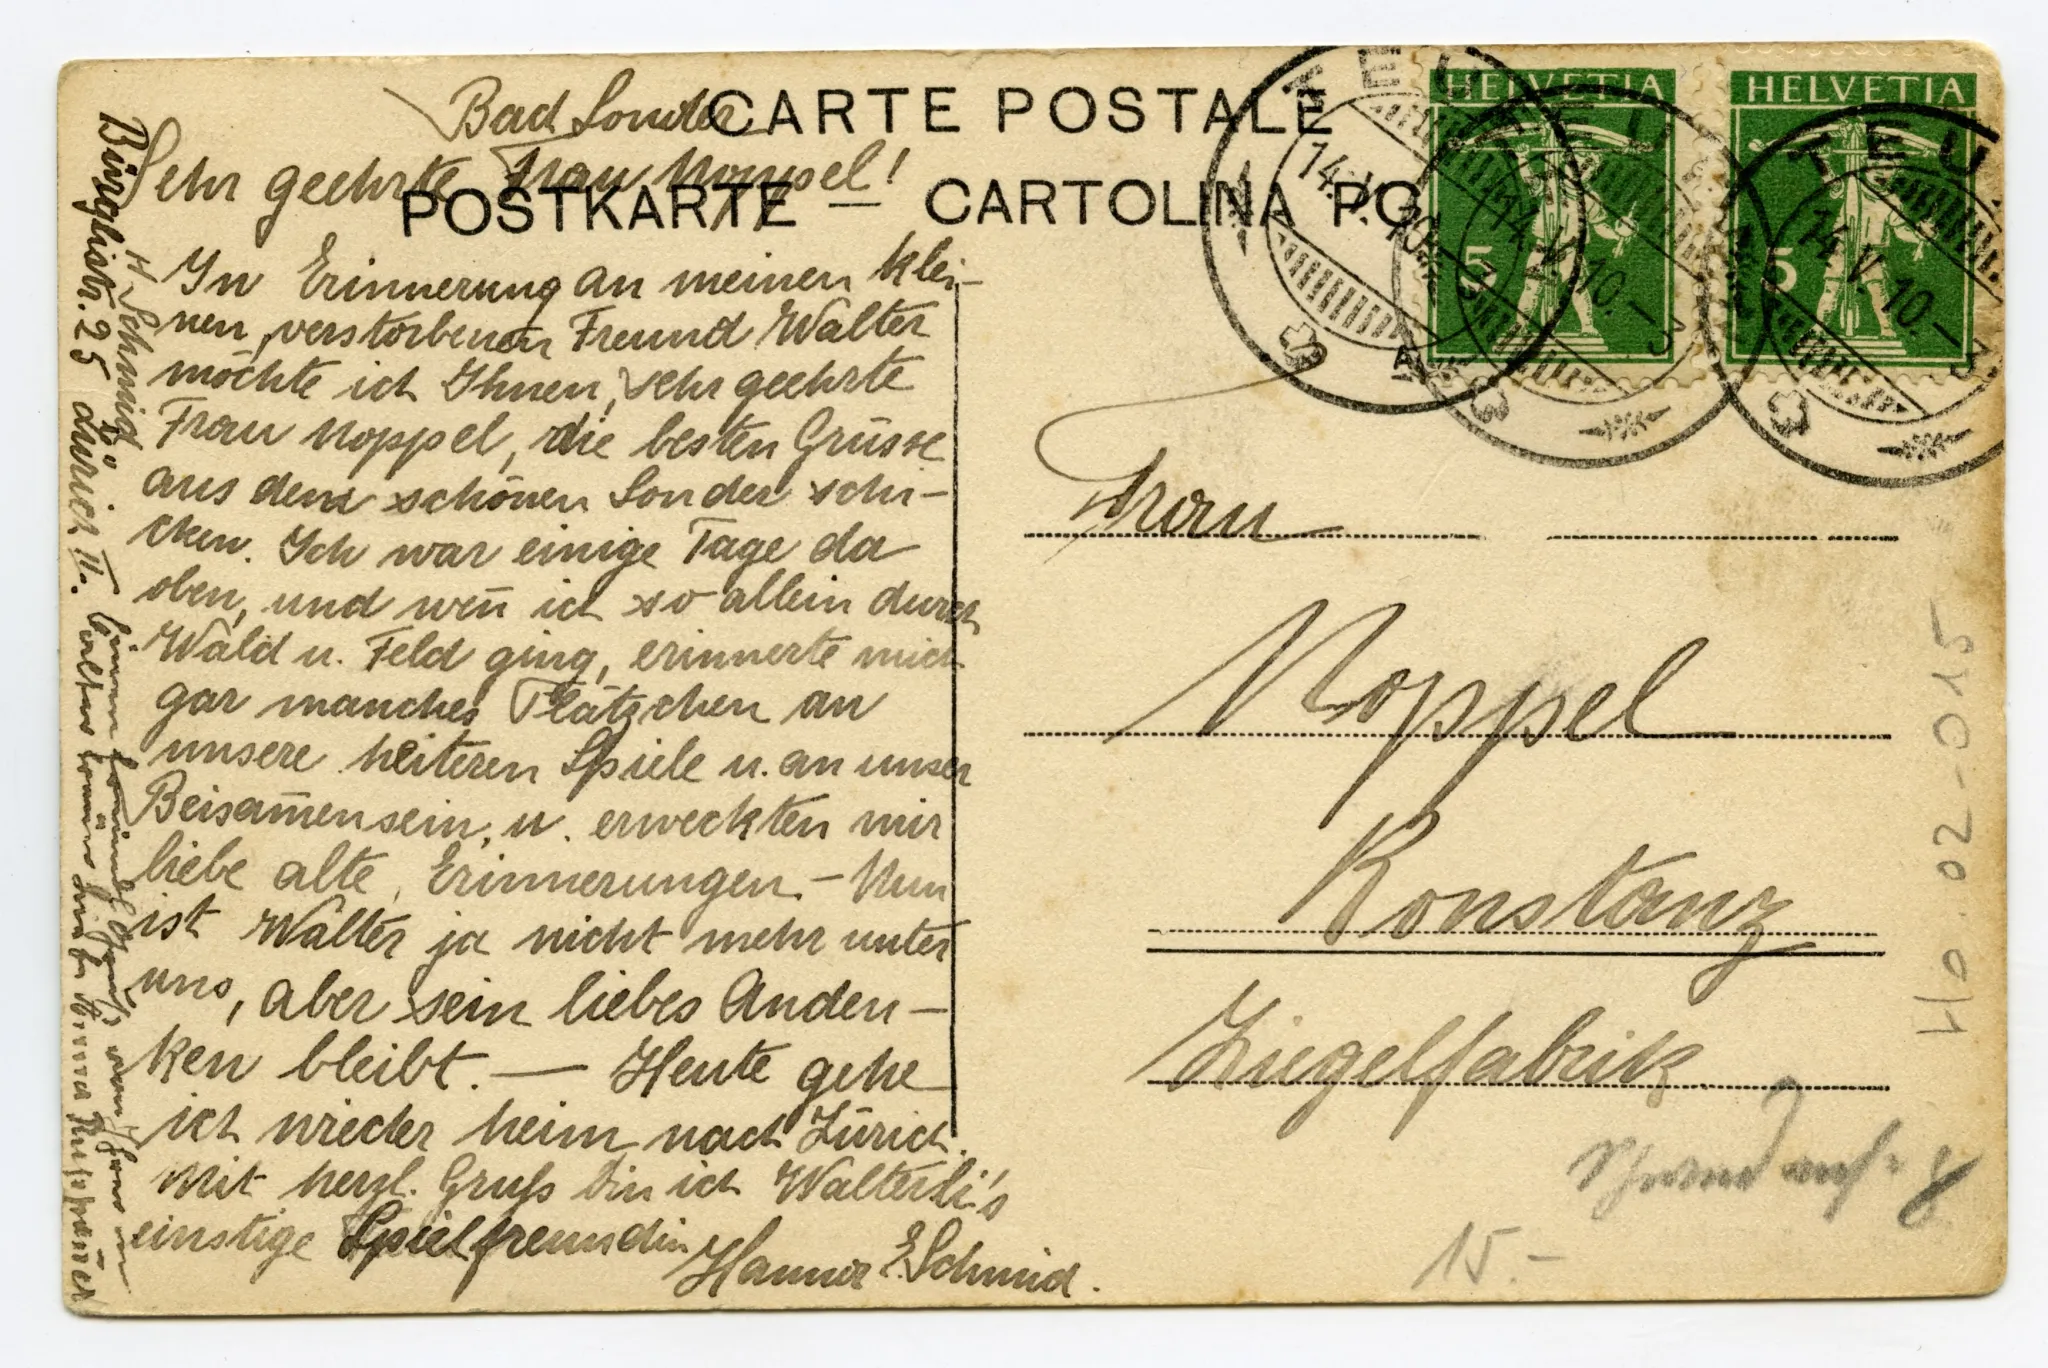 CARTE POSTALE
POSTKARTE — CARTOLINA PO
HELVETIA
5
HELVETIA
5
TEU
14. V. 10.
TEU
14. V. 10. – 3
Bad Sonder
Sehr geehrte Frau Noppel!
In Erinnerung an meinen klei-
nen, verstorbenen Freund Walter
möchte ich Ihnen, sehr geehrte
Frau Noppel, die besten Grüsse
aus dem schönen Sonder schi-
cken. Ich war einige Tage da
oben, und weñ ich so allein durch
Wald u. Feld ging, erinnerte mich
gar manches Plätzchen an
unsere heiteren Spiele u. an unser
Beisam̄ensein, u. erweckten mir
liebe alte Erinnerungen. – Nun
ist Walter ja nicht mehr unter
uns, aber sein liebes Anden-
ken bleibt. — Heute gehe
ich wieder heim nach Zürich.
Mit herzl. Gruß bin ich Walterli's
einstige Spielfreundin
Hanna E. Schmid.
H. Schmid
Bürglistr. 25 Zürich II.
von
Frau
Noppel
Konstanz
Ziegelfabrik.
15.–
Ho.02-015